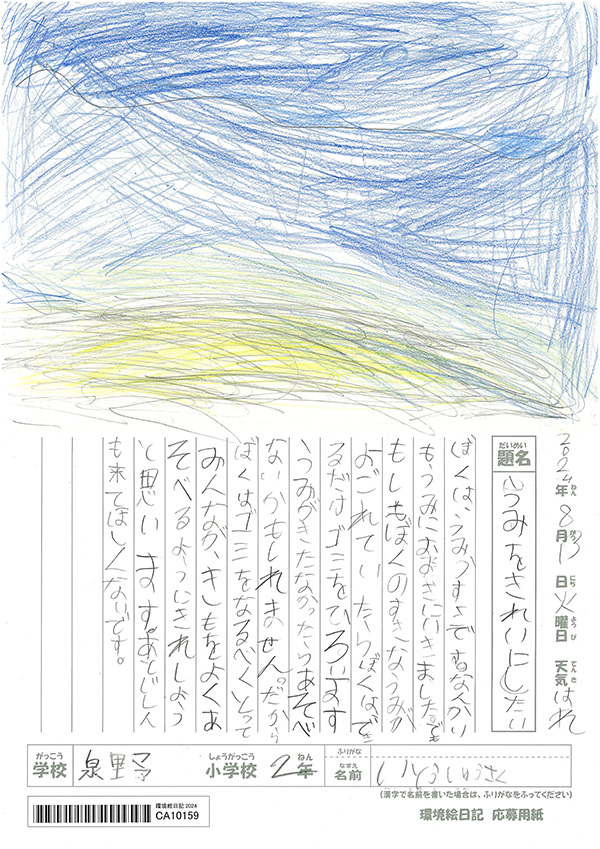 2024年ねん 8月がつ13日にち 火曜日ようび 天気てんき はれ
だいめい
題名 うみをきれいにしたい
ぼくは、うみがすきでね。なんかい
もうみにおよぎにいきました。でも
もしもぼくのすきなうみが
よごれていたらぼくは、でき
るだけゴミをひろいます
うみがきたなかったらあそべ
ないかもしれません。だから
ぼくはゴミをなるべくとって
みんなが、きもちをよくあ
そべるようにきれしよう
と思います。あとじしん
も来てほしくないです。
がっこう
学校 泉里 しょうがっこう 小学校 2年ねん
ふりがな
なまえ
名前
(漢字で名前を書いた場合は、ふりがなをふってください)
環境絵日記 応募用紙
環境絵日記 2024
CA10159